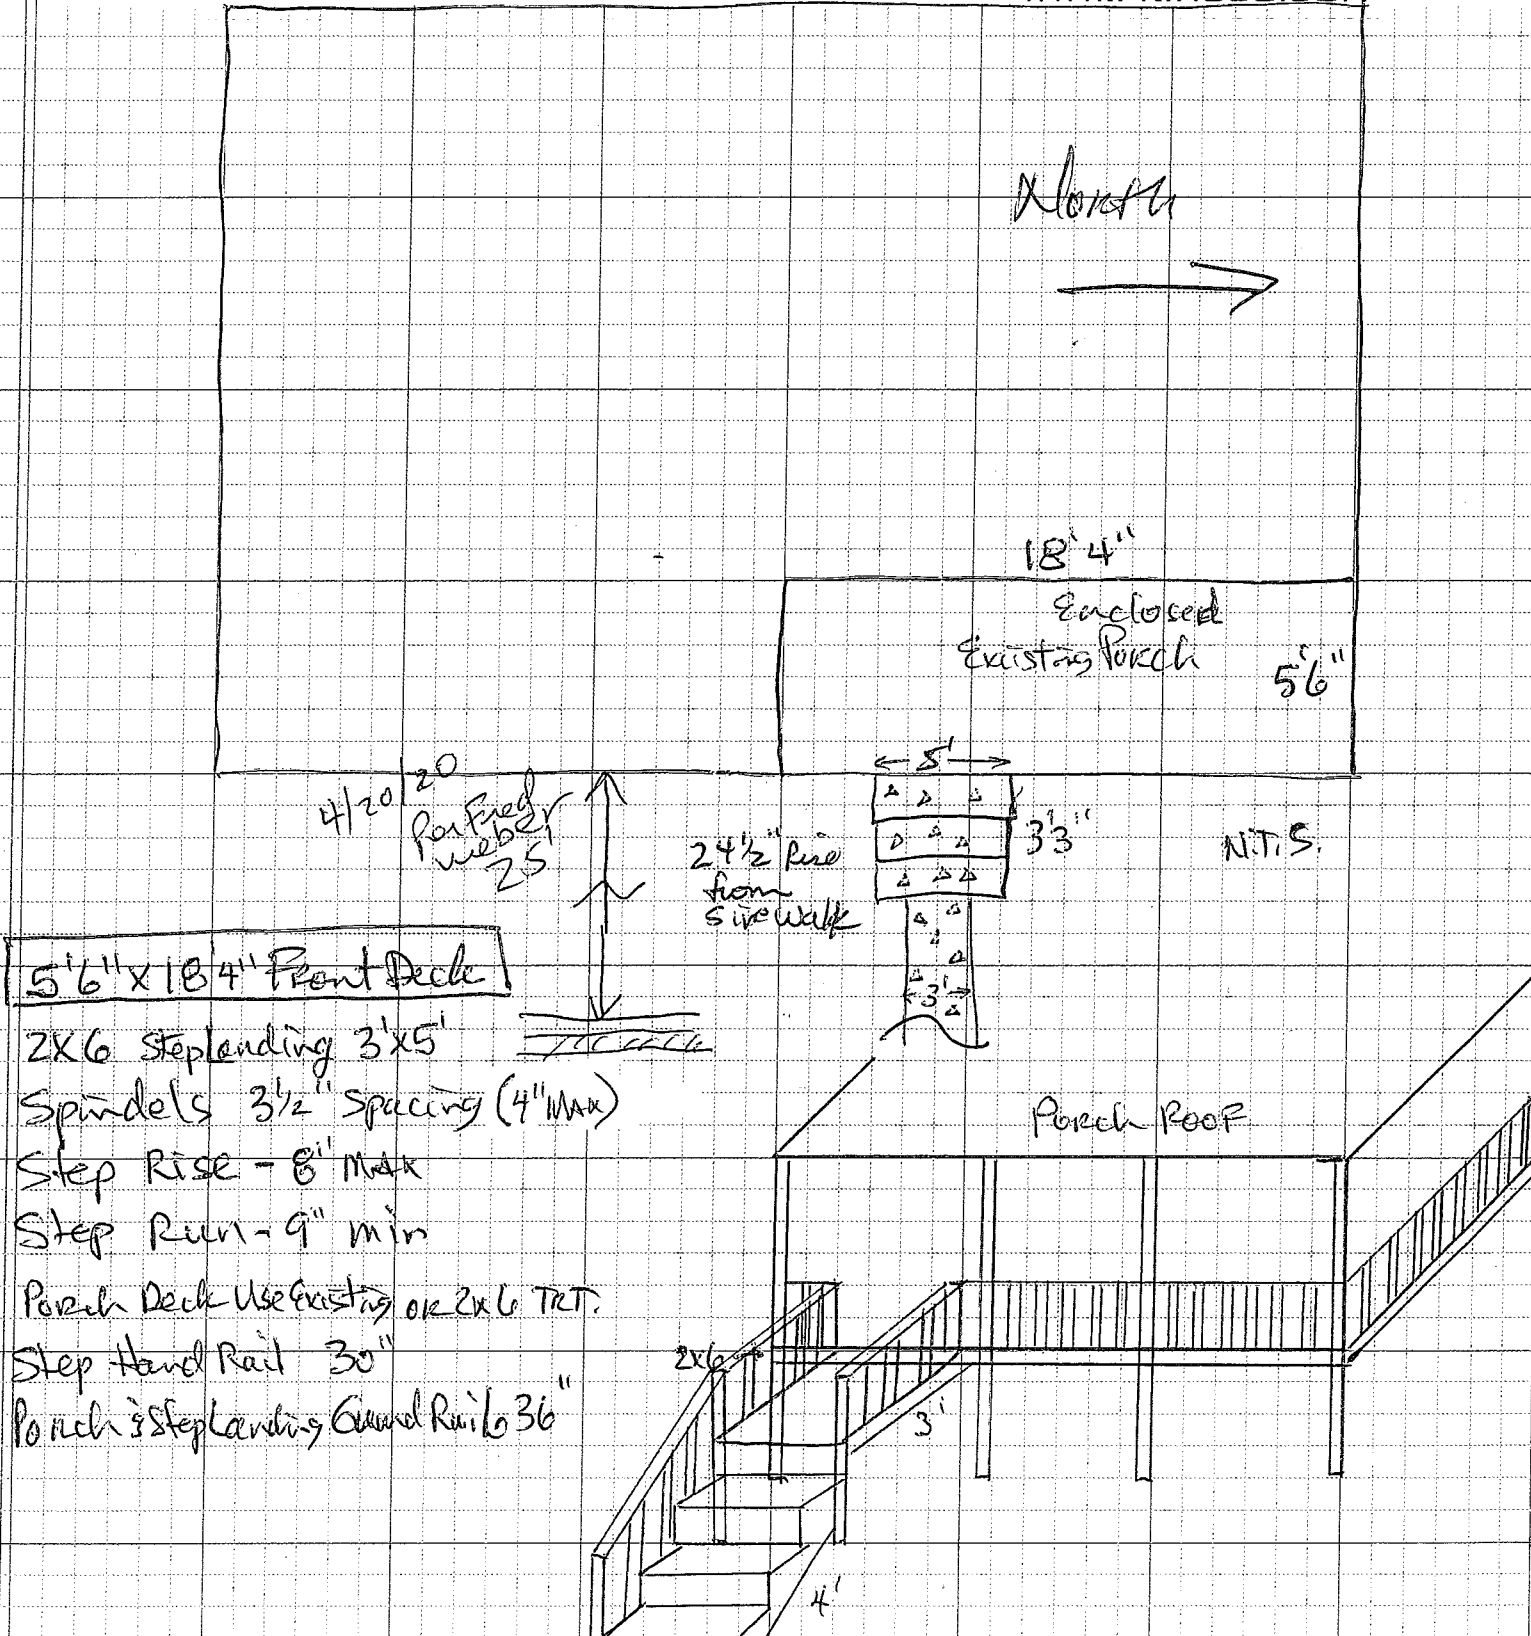 North
18'4"
Enclosed
Existing Porch
5'6"
5'
4/20/20
Per Fred
Weber
25'
24½" Rise
from
SiveWalk
3'3"
N.T.S.
3'
5'6" X 18'4" Front Deck
2X6 StepLanding 3'x5'
Spindels 3½" Spacing (4" MAX)
Step Rise - 8" MAX
Step Run - 9" min
Porch Deck Use Existing or 2x6 TRT.
Step Hand Rail 30"
Porch & StepLanding Guard Rails 36"
Porch Roof
2x6
3'
4'